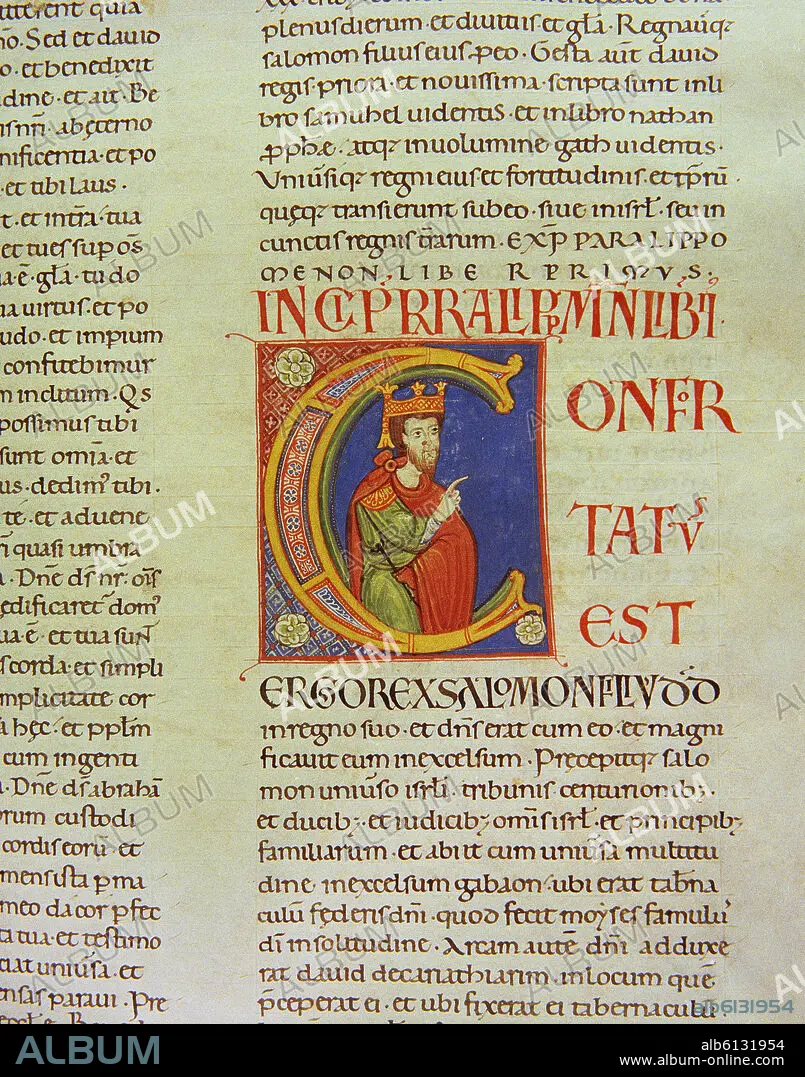 itterent quia
nō. Sed et dauid
o. et benedixit
udine. et ait. Be
isnr̄i. abęterno
nificentia. et po
. et tibi laus.
t. et intr̄a. tua
et tu es sup om̄s
ua. ē. gl̄a. tu do
ua uirtus. et po
udo. et impium
confitebimur
m inclitum. Qs
possimus tibi
sunt om̄ia. et
us. dedim᷒ tibi.
te. et aduene
ri quasi umbra
. Dn̄e ds̄ nr̄. om̄s
edificaret᷒ dom᷒
ua. ē. et tua sun̄
scorda. et simpli
mplicitate cor
hęc. et pp̄lm̄
cum ingenti
. Dn̄e ds̄ abrahā
orum custodi
cordis eorū. et
mens ista ꝑma
meo da cor ꝑfec
ta tua. et testimo
ciat uniūsa. et
ensas paraui. Pre
plenus dierum. et diuitiis et gl̄a. Regnauitqꝫ
salomon filius eius ꝓ eo. Gesta aut̄ dauid
regis priora. et nouissima. scripta sunt in li
bro samuhel uidentis. et in libro nathan
ꝓphę. atqꝫ in uolumine gath uidentis.
Uniūsiqꝫ regni eius et fortitudinis. et tp̄rū.
quęqꝫ transierunt sub eo. siue in isrl̄. seu in
cunctis regnis tr̄arum. EXP̄ PARALIPPO
MENON. LIBER PRIMVS.
INCIP̄ PARALIPPMN̄ LIB̄ II.
CONFOR
TATVS
EST
ERGO REX SALOMON FILIVS DD̄
in regno suo. et dn̄s erat cum eo. et magni
ficauit eum in excelsum. Pręcepitqꝫ salo
mon uniūso isrl̄i. tribunis. centurionibꝫ.
et ducibꝫ. et iudicibꝫ om̄is isrl̄. et principibꝫ
familiarum. et abiit cum uniūsa multitu
dine. in excelsum gabaon. ubi erat tab̄na
culū fęderis dn̄i. quod fecit moyses famulu᷒
dī in solitudine. Arcam autē dn̄i adduxe
rat dauid de cariathiarim. in locum quē
p̄ceperat ei. et ubi fixerat ei tabernaculū.
alb6131954
ALBUM
alb6131954
www.album-online.com